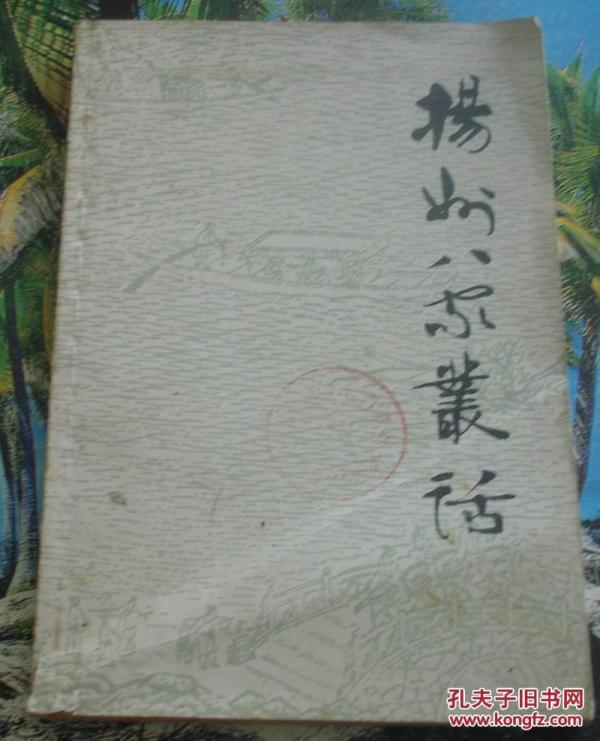 揚州八家叢話
孔夫子旧书网
www.kongfz.com